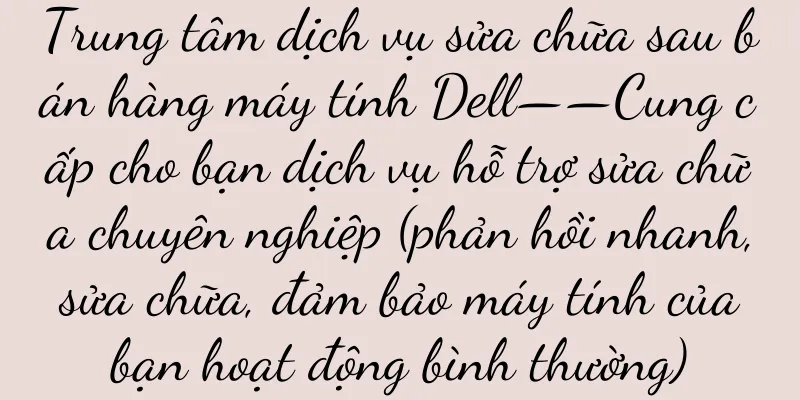 Trung tâm dịch vụ sửa chữa sau b
án hàng máy tính Dell——Cung c
ấp cho bạn dịch vụ hỗ trợ sửa chữ
a chuyên nghiệp (phản hồi nhanh,
sửa chữa, đảm bảo máy tính của
bạn hoạt động bình thường)